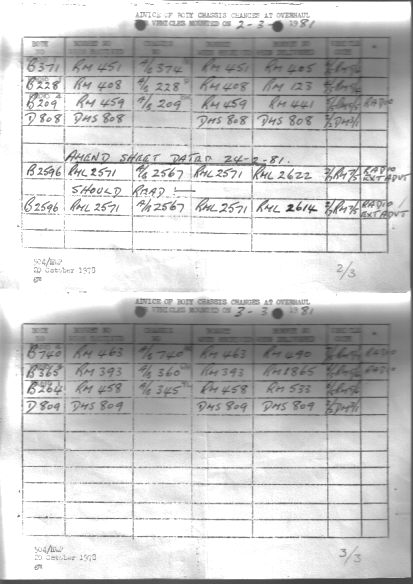 ADVICE OF BODY CHASSIS CHANGES AT OVERHAUL
VEHICLES MOUNTED ON 2-3-1981
BODY NO BONNET NO WHEN RECEIVED CHASSIS NO BONNET WHEN BONNET NO WHEN DELIVERED VEHICLE CODE
B371 RM 451 A/S 374 RM 451 RM 405
B228 RM 408 A/S 228 RM 408 RM 123
B209 RM 459 A/S 209 RM 459 RM 441 RADIO
D808 DMS 808 DMS 808 DMS 808
AMEND SHEET DATED 24-2-81.
B2596 RML 2571 A/S 2567 RML 2571 RML 2622 RADIO EXT ADVT
SHOULD READ:—
B2596 RML 2571 A/S 2567 RML 2571 RML 2614 RADIO EXT ADVT
20 October 1978
2/3
ADVICE OF BODY CHASSIS CHANGES AT OVERHAUL
VEHICLES MOUNTED ON 3-3-1981
BODY NO BONNET NO WHEN RECEIVED CHASSIS NO BONNET WHEN BONNET NO WHEN DELIVERED VEHICLE CODE
B740 RM 463 A/S 740 RM 463 RM 490 RADIO
B365 RM 393 A/S 360 RM 393 RM 1865 RADIO
B264 RM 458 A/S 345 RM 458 RM 533
D809 DMS 809 DMS 809 DMS 809
20 October 1978
3/3